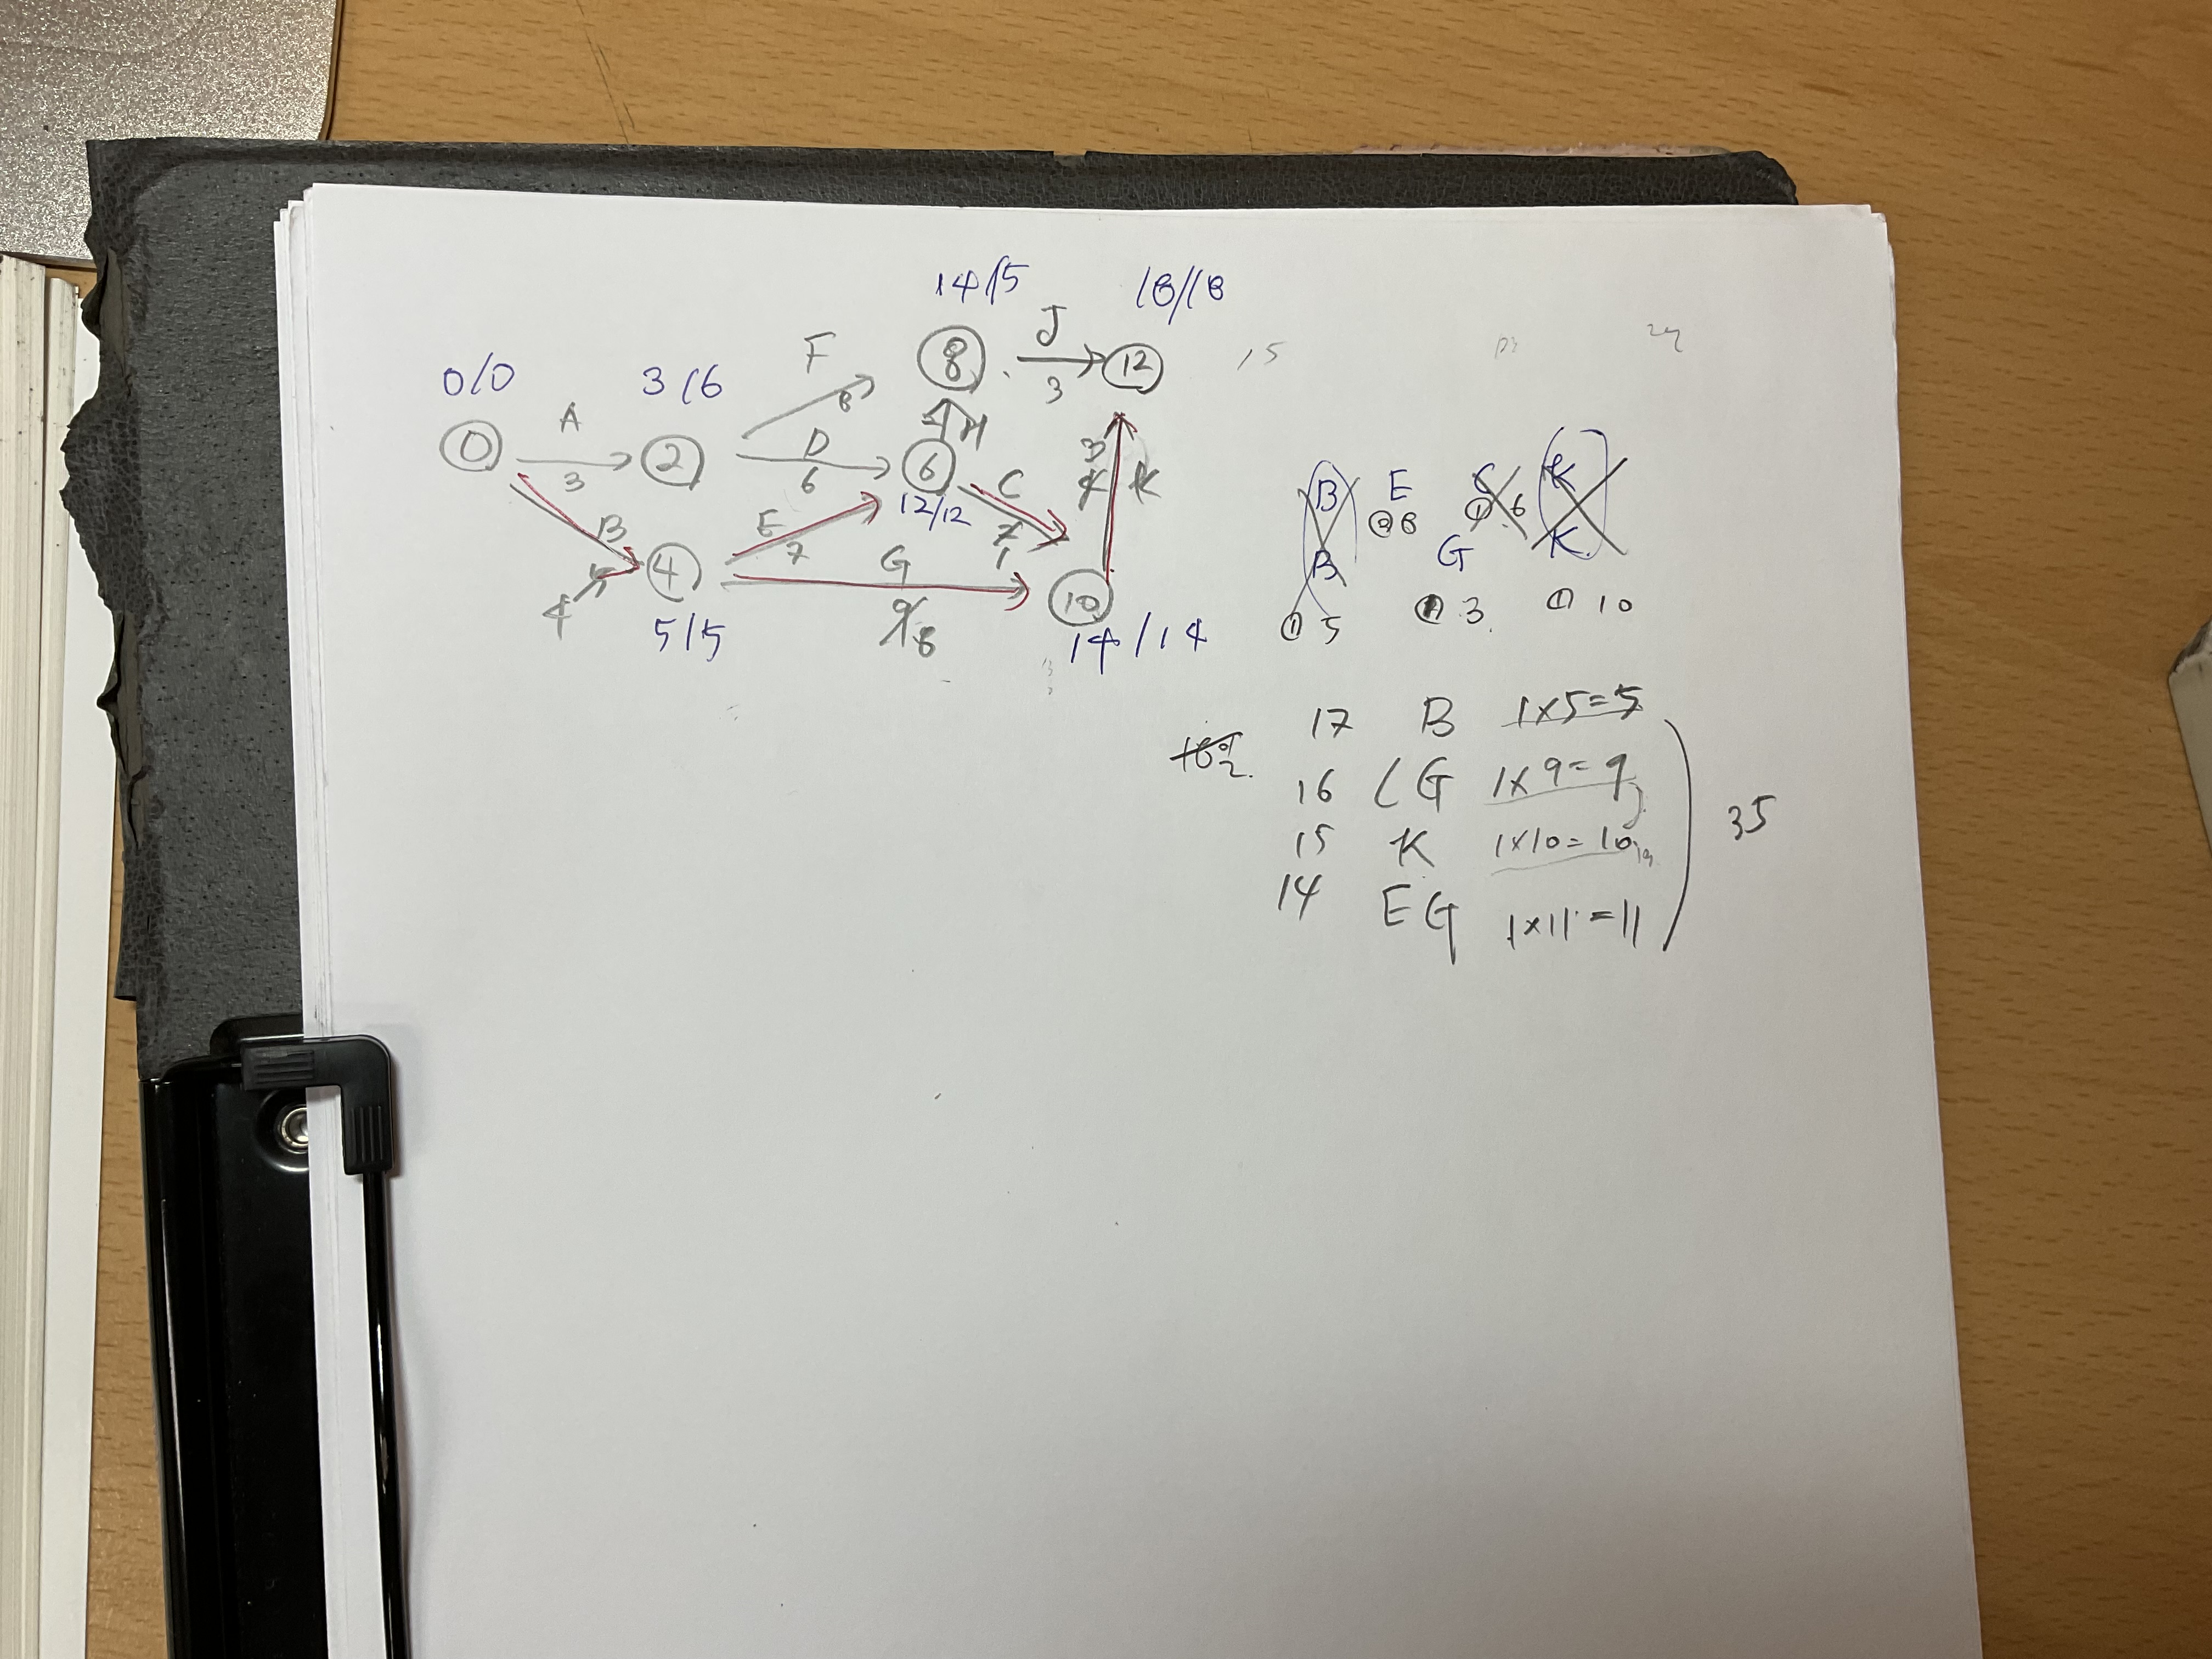 14/15
18/18
J
8
12
3
15
F
8
0/0
3/6
A
0
2
3
D
6
6
12/12
C
1
K
B
E
7
G
8
4
4
5/5
10
14/14
B
E
K
8
6
B
G
K
① 5
3
① 10
17 B 1×5=5
16 G 1×9=9
15 K 1×10=10
14 E G 1×11=11
35